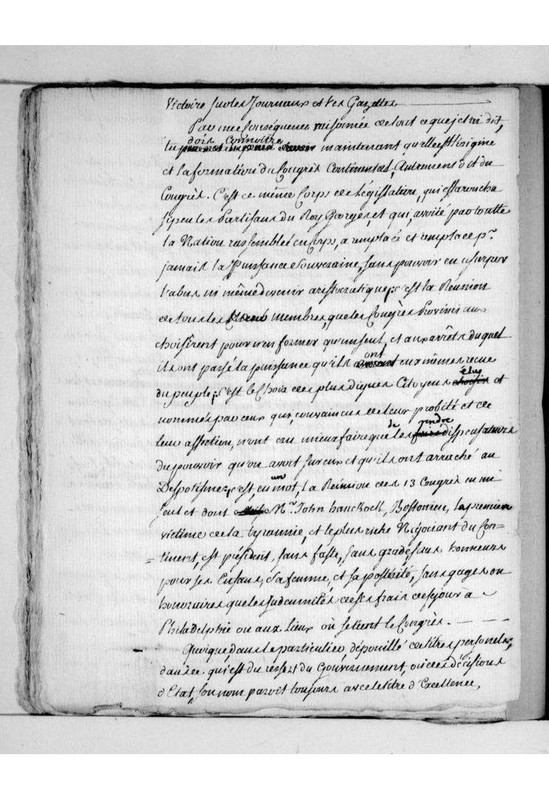 Victoire sur les Journaux et les Gazettes
Par une Consequence raisonnée de tout ce que j'ai dit,
doit Connoitre
tu maintenant quelle est l'origine
et la formation du Congrès Continental, Autrement dit du
Congrès. C'est ce même Corps de Législation, qui
les Partisans du Roy George, et qui avoité par toutte
la Nation rassemblée en Corps, a remplacé et remplace pr.
jamais la Puissance Souveraine, sans pouvoir en usurper
l'abus ni même devenir aristocratique; c'est la Réunion
de tous les membres, que les Congrès Provinciaux
choisirent pour n'en former qu'un seul, et aux arrêts duquel
ils ont passé la puissance qu'ils ont eux mêmes recue
du peuple; c'est le Choix des plus dignes Citoyens élus et
nommés par ceux qui, convaincus de leur probité et de
leur affection, n'ont cru mieux faire que de les rendre dispensateurs
du pouvoir qu'on avoit sur eux et qu'ils ont arraché au
Despotisme; c'est en un mot, la Réunion des 13 Congrès en un
seul et dont Mr. John hancKock, Bostonien, la premiere
victime de la tyrannie, et le plus riche Négociant du Con-
=tinent est président, sans faste, sans grades, sans honneurs
pour ses Enfans, sa femme, et sa postérité, sans gages ou
honoraires que les indemnités de ses frais de séjour a
Philadelphie ou aux lieux où se tient le Congrès.
Quoique, dans le particulier, dépouillé de titres personels,
dans ce qui est du ressort du Gouvernement, où ces décisions
d'Etat, son nom paroit toujours avec le titre d'Excellence,